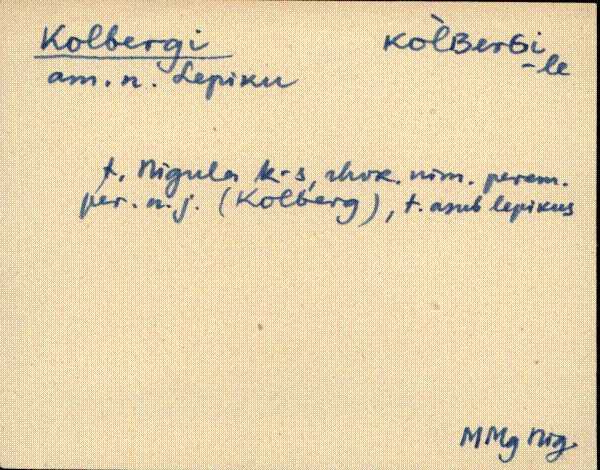 Kolbergi kòlBerGi
-le
am. n. Lepiku
t. Nigula k-s, rhvk. nim. perem.
per. n. j. (Kolberg), t. asub lepikus
MMg Nig